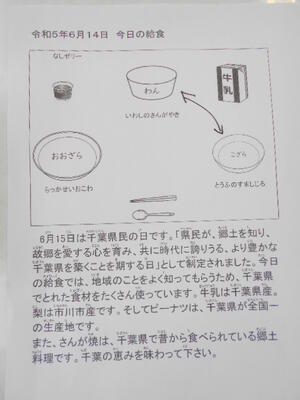 令和5年6月14日　今日の給食
なしゼリー
わん
牛乳
いわしのさんがやき
おおざら
こざら
らっかせいおこわ
とうふのすましじる
6月15日は千葉県民の日です。「県民が、郷土を知り、
故郷を愛する心を育み、共に時代に誇りうる、より豊かな
千葉県を築くことを期する日」として制定されました。今日
の給食では、地域のことをよく知ってもらうため、千葉県
でとれた食材をたくさん使っています。牛乳は千葉県産。
梨は市川市産です。そしてピーナツは、千葉県が全国一
の生産地です。
また、さんが焼は、千葉県で昔から食べられている郷土
料理です。千葉の恵みを味わって下さい。